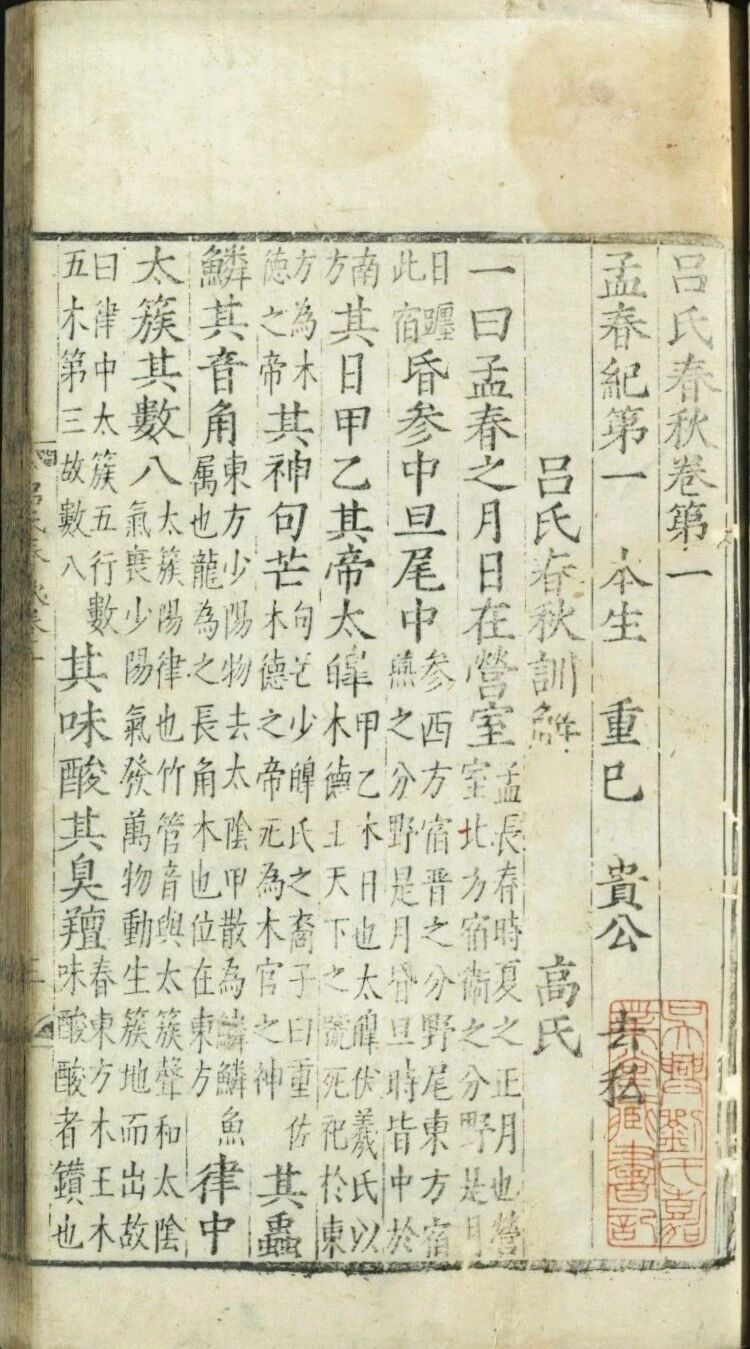 呂氏春秋卷第一
孟春紀第一 本生 重巳 貴公 去私
呂氏春秋訓解 高氏
一曰孟春之月日在營室孟長春時夏之正月也營室北方宿衞之分野是月
日躔此宿昏参中旦尾中参西方宿晉之分野尾東方宿燕之分野是月昏旦時皆中於
南方其日甲乙其帝太皥甲乙木日也太皥伏羲氏以木德王天下之號死祀於東
方為木德之帝其神句芒句芒少皥氏之裔子曰重佐木德之帝死為木官之神其蟲
鱗其音角東方少陽物去太陰甲散為鱗鱗魚属也龍為之長角木也位在東方律中
太簇其數八太簇陽律也竹管音與太簇聲和太陰氣衰少陽氣發萬物動生簇地而出故
曰律中太簇五行數五木第三故數八其味酸其臭羶春東方木王木味酸酸者鑽也
吳興劉氏嘉
業堂藏書記